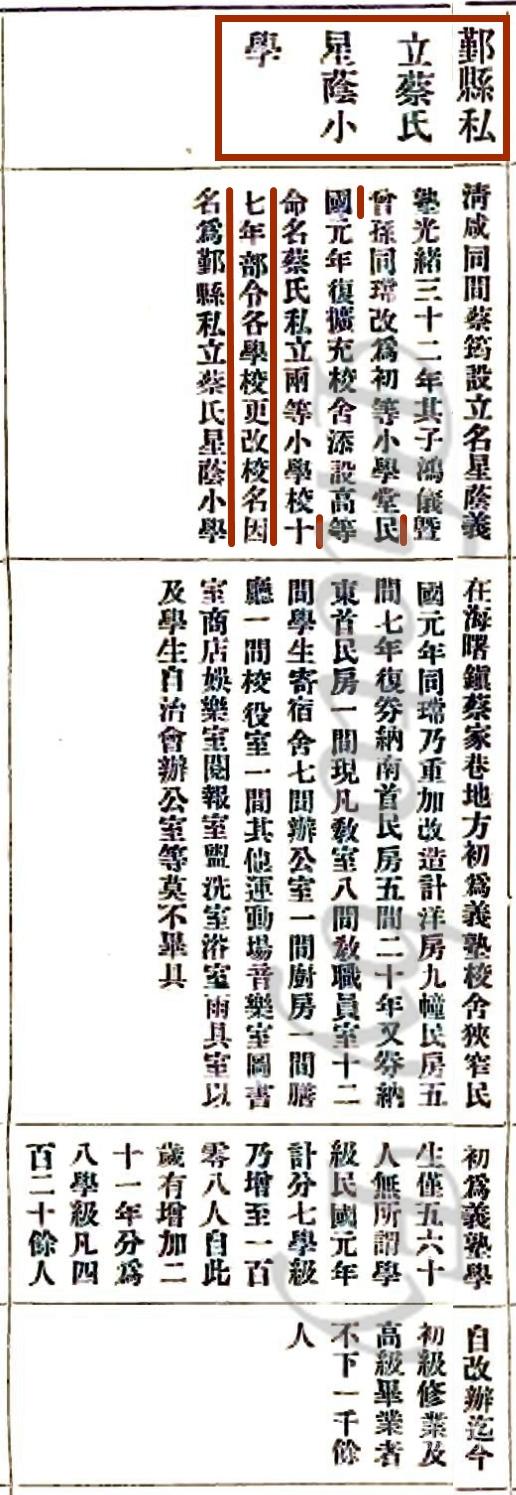 鄞縣私
立蔡氏
星蔭小
學
清咸同間蔡筠設立名星蔭義
塾光緒三十二年其子鴻儀暨
曾孫同瑺改為初等小學堂民
國元年復擴充校舍添設高等
命名蔡氏私立兩等小學校十
七年部令各學校更改校名因
名爲鄞縣私立蔡氏星蔭小學
在海曙鎭蔡家巷地方初爲義塾校舍狹窄民
國元年同瑺乃重加改造計洋房九幢民房五
間七年復劵納南首民房五間二十年又劵納
東首民房一間現凡敎室八間敎職員室十二
間學生寄宿舍七間辦公室一間廚房一間膳
廳一間校役室一間其他運動場音樂室圖書
室商店娛樂室閱報室盥洗室浴室雨具室以
及學生自治會辦公室等莫不畢具
初爲義塾學
生僅五六十
人無所謂學
級民國元年
計分七學級
乃增至一百
零八人自此
歲有增加二
十一年分爲
八學級凡四
百二十餘人
自改辦迄今
初級修業及
高級畢業者
不下一千餘
人